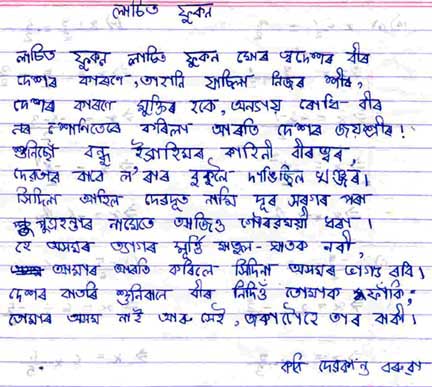 লাচিত ফুকন
লাচিত ফুকন লাচিত ফুকন মোৰ স্বদেশৰ বীৰ
দেশৰ কাৰণে, আহানি যাচিলা নিজৰ শীৰ,
দেশৰ কাৰণে মুক্তিৰ হকে, অন্যায় ৰোধি বীৰ
নৰ শোণিতেৰে কৰিলা আৰতি দেশৰ জয়শ্ৰীৰ!
শুনিছোঁ বন্ধু ইব্ৰাহিমৰ কাহিনী বীৰত্বৰ,
দেৱতাৰ বাবে ল'ৰাৰ বুকুলৈ দাঙিছিল খঞ্জৰ।
সিদিনা আহিল দেৱদূত নামি দূৰ সৰগৰ পৰা
পুত্ৰহন্তাৰ নামেতে আজিও গৌৰৱময়ী ধৰা।
হে অসমৰ ত্যাগৰ মূৰ্ত্তি মাতুল-ঘাতক নবী,
আত্মাৰ আৰতি কৰিলে সিদিনা অসমৰ ভাগ্য ৰবি।
দেশৰ বাতৰি শুনিবলৈ বীৰ নিদিওঁ তোমাক ফাঁকি;
তোমাৰ অসম নাই আৰু সেই, জকাটোহে তাৰ বাকী।
কবি দেৱকান্ত বৰুৱা